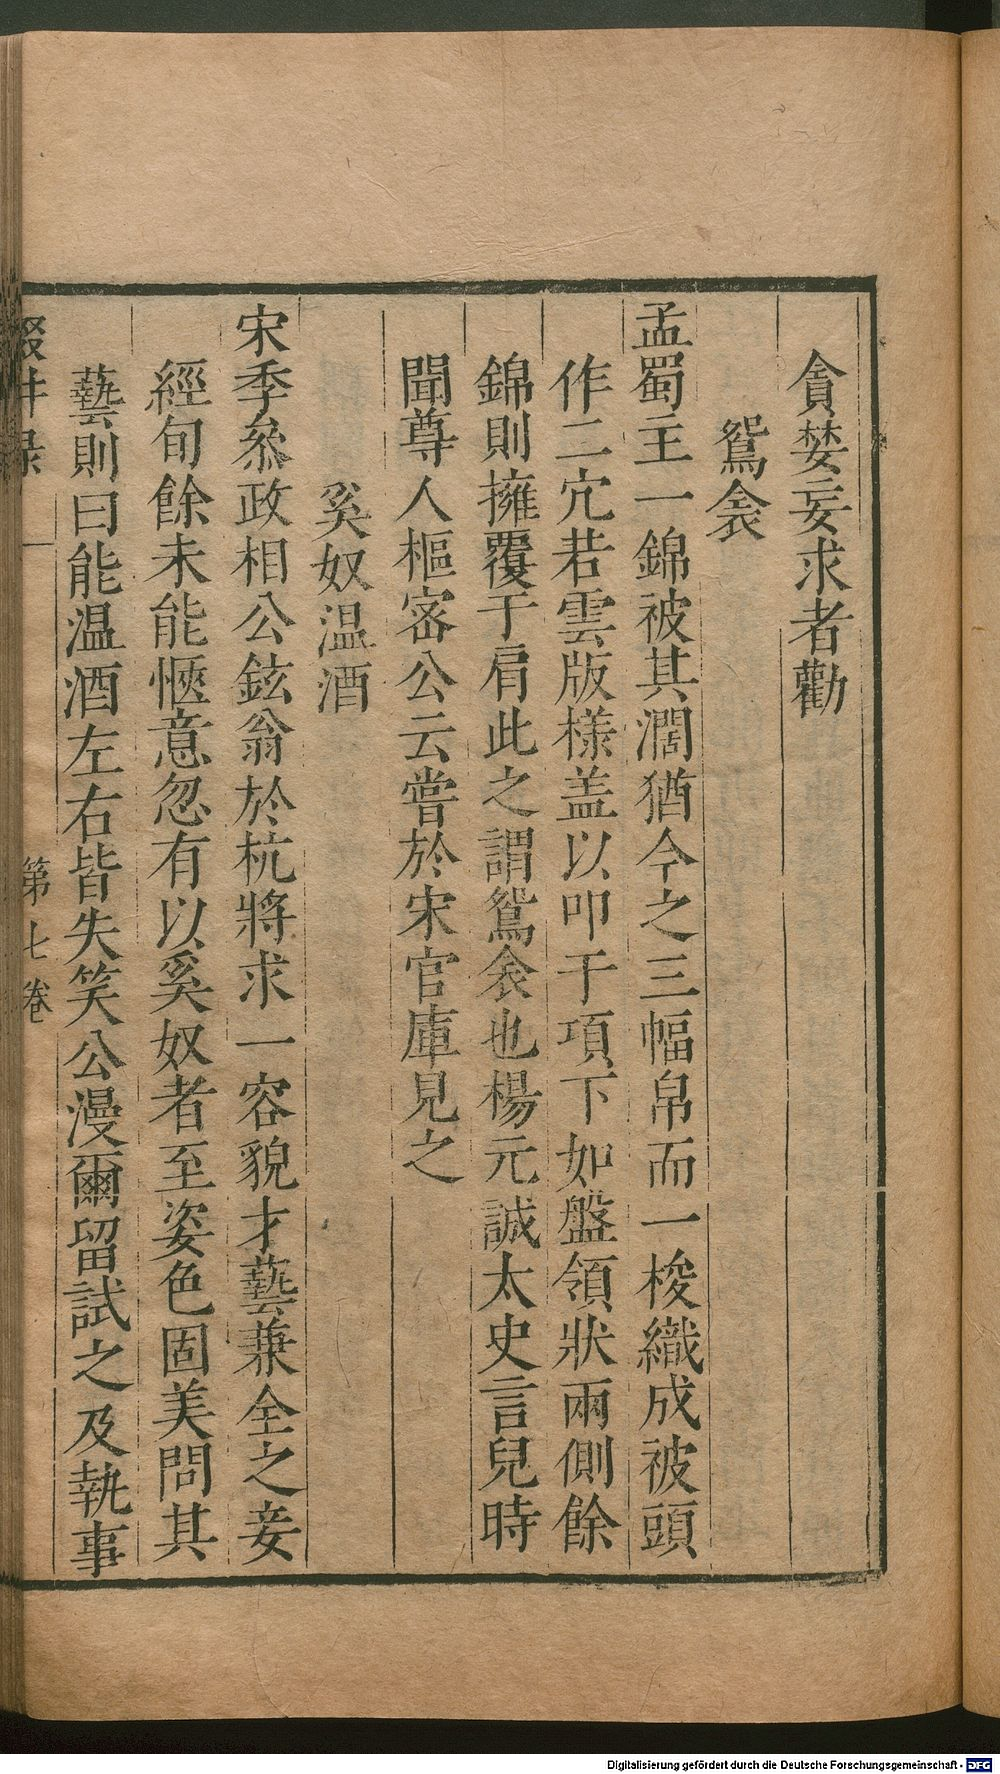 貪婪妄求者勸
鴛衾
孟蜀主一錦被其濶猶今之三幅帛而一梭織成被頭
作二穴若雲版様盖以叩于項下如盤領狀兩側餘
錦則擁覆于肩此之謂鴛衾也楊元誠太史言兒時
聞尊人樞密公云嘗於宋官庫見之
奚奴温酒
宋季叅政相公鉉翁於杭將求一容貌才藝兼全之妾
經旬餘未能愜意忽有以奚奴者至姿色固美問其
藝則曰能温酒左右皆失笑公漫爾留試之及執事
輟耕录 第七卷
Digitalisierung gefördert durch die Deutsche Forschungsgemeinschaft - DFG